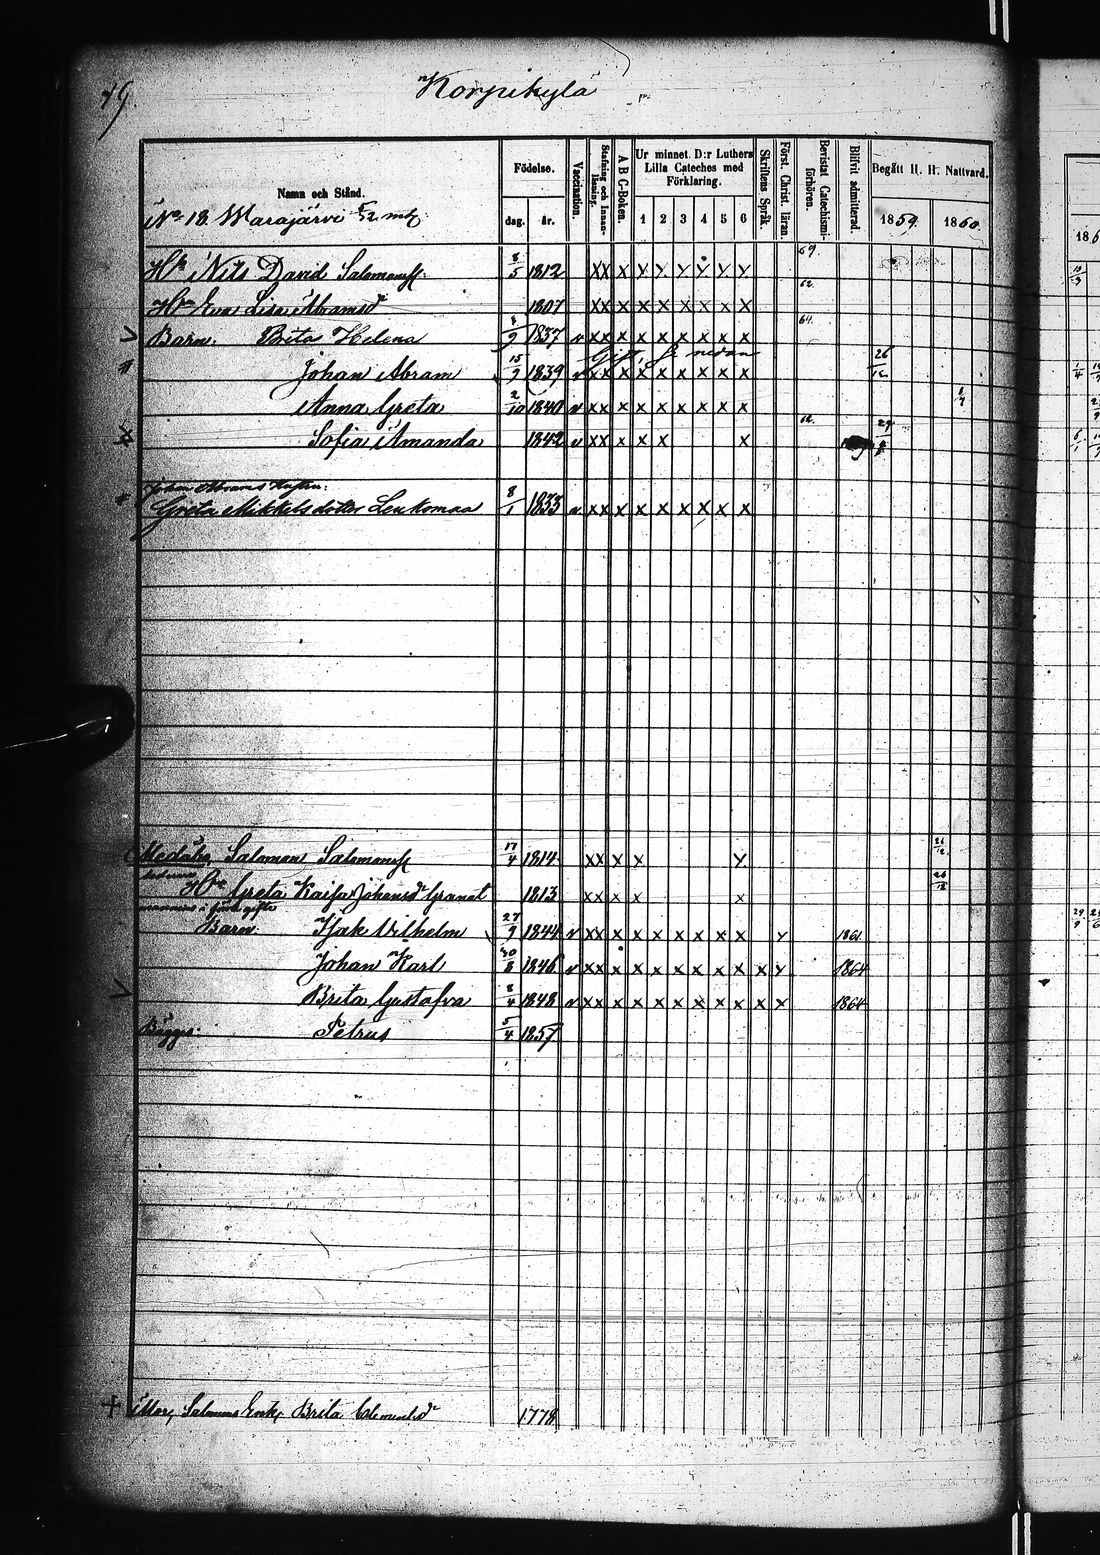 Korpikylä
Namn och Stånd. Födelse. dag. år. Vaccination. Stafning och Innanläsning. A B C-Boken. Ur minnet D:r Luthers Lilla Cateches med Förklaring. 1 2 3 4 5 6 Skriftens Språk. Först. Christ. läran. Bevistat Catechismiförhören. Blifvit admitterad Begått H. H. Nattvard. 1859. 1860.
No 18. Warajärvi
Nils David Salomonss. 8/5 1812 XX X Y Y Y Y Y Y 69.
Eva Lisa Abramsd 1807 XX X X X X X X X 62.
Barn: Brita Helena 8/9 1837 v XX X X X X X X X 64.
Gift, se nedan
Johan Abram 15/9 1839 v XX X X X X X X X 26/12
Anna Greta 2/10 1840 v XX X X X X X X X
Sofia Amanda 1842 v XX X X X X 62.
Johan Abrams Hustru:
Greta Mikkelsdotter Leukomaa 8/1 1833 v XX X X X X X X X
Salomon Salomonss 17/4 1814 XX X X Y 26/12
Greta Kaisa Johansd Granat 1813 XX X X X 26/12
Barn: Isak Vilhelm 27/9 1844 v XX X X X X X X X Y 1861.
Johan Karl 30/8 1846 v XX X X X X X X X X Y 1864
Brita Gustafva 8/4 1848 v XX X X X X X X X X X 1864
Petrus 5/4 1857
Mor, Salomons Enk, Brita Clementsd 1778